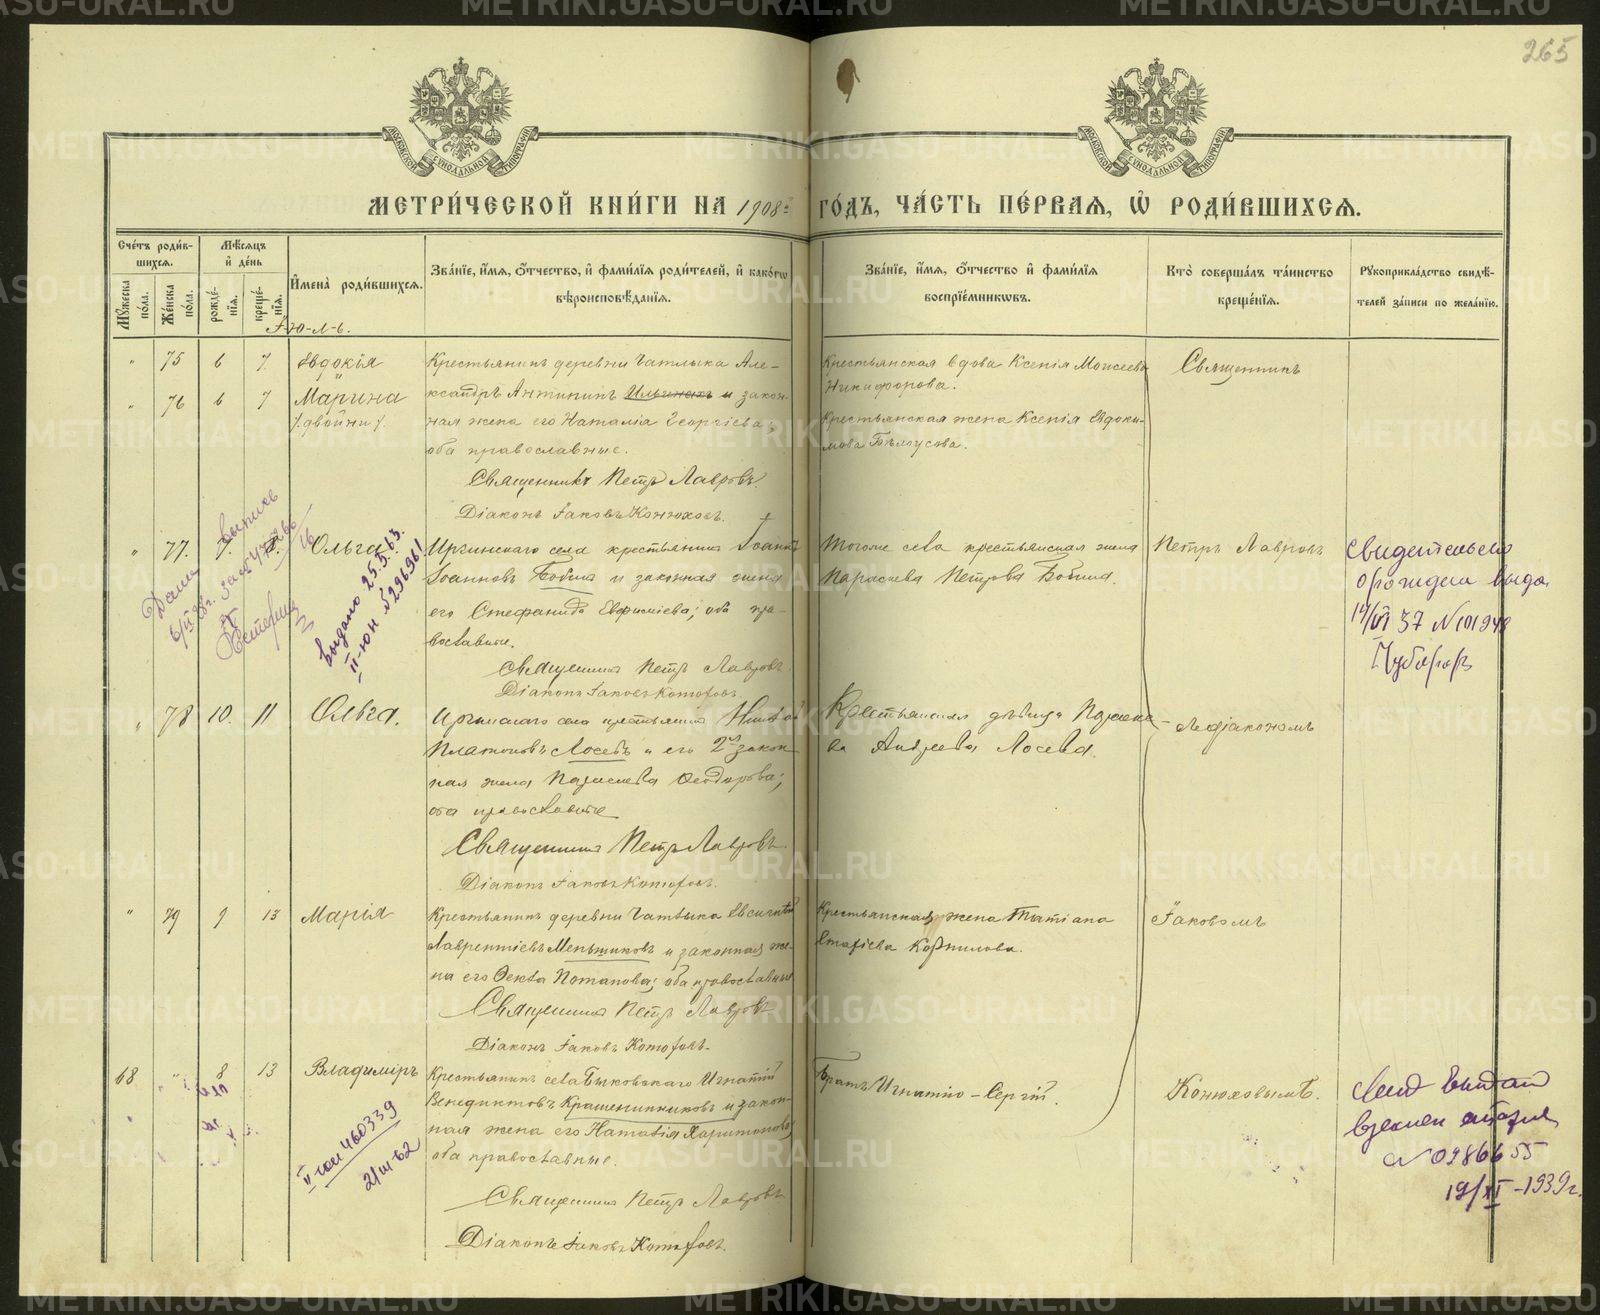 265
МЕТРИ́ЧЕСКОЙ КНИ́ГИ НА 1908й ГО́ДЪ, ЧА́СТЬ ПЕ́РВАЯ, Ѽ РОДИ́ВШИХСЯ.
Сче́тъ роди́вшихся.
Му́жеска по́ла.
Же́нска по́ла.
Мѣ́сяцъ и де́нь
рожде́нїя.
креще́нїя.
Имена̀ роди́вшихся.
Зва́нїе, и́мя, о́тчество, и фами́лїя роди́телей, и како́гѡ вѣроисповѣ́данїя.
Зва́нїе, и́мя, о́тчество и фами́лїя воспрїе́мниковъ.
Кто̀ соверша́лъ та́инство креще́нїя.
Рукоприкла́дство свидѣ́телей за́писи по жела́нїю.
Іюль.
" 75 6 7. Евдокія
" 76 6 7 Марина
/.двойни/.
Крестьянинъ деревни Чатлыка Але-
ксандръ Антипинъ и закон-
ная жена его Наталія Георгіева,
оба православные.
Священникъ Петръ Лавровъ.
Діаконъ Іаковъ Конюховъ.
Крестьянская вдова Ксенія Моисеева
Никифорова.
Крестьянская жена Ксенія Евдоки-
мова Бѣлоусова.
Священникъ
" 77. 7. 8. Ольга
Иргинскаго села крестьянинъ Іоаннъ
Іоанновъ и законная жена
его Стефанида Евфиміева; оба пра-
вославные.
Священникъ Петръ Лавровъ.
Діаконъ Іаковъ Конюховъ.
Тогоже села крестьянская жена
Параскева Петрова
Петръ Лавровъ
Свидетельство
о рождении выда.
14/VI 37 N 101948
выдано 25.5.63.
II-юн №296961.
" 78 10. 11 Ольга.
Иргинскаго села крестьянинъ
Платоновъ Лосевъ и его 2й закон
ная жена Параскева Ѳеодорова;
оба православные
Священникъ Петръ Лавровъ
Діаконъ Іаковъ Конюховъ.
Крестьянская дѣвица Параске-
ва Андреева Лосева.
съ діакономъ
" 79 9 13 Марія
Крестьянинъ деревни Чатлыка Евсигній
Лаврентіевъ Меньшиковъ и законная же-
на его Ѳекла Потапова; оба православные
Священникъ Петръ Лавровъ
Діаконъ Іаковъ Конюховъ.
Крестьянская жена Татіана
Корнилова.
Іаковомъ
68 " 8 13 Владиміръ
Крестьянинъ села Быковскаго Игнатій
Венедиктовъ Крашенинниковъ и закон-
ная жена его Наталія Харитонова,
оба православные.
Священникъ Петръ Лавровъ
Діаконъ Іаковъ Конюховъ.
Братъ Игнатію - Сергій.
Конюховымъ.
II-юн 460339
2/III 62
N 0286655
19/XI-1939г.
METRIKI.GASO-URAL.RU